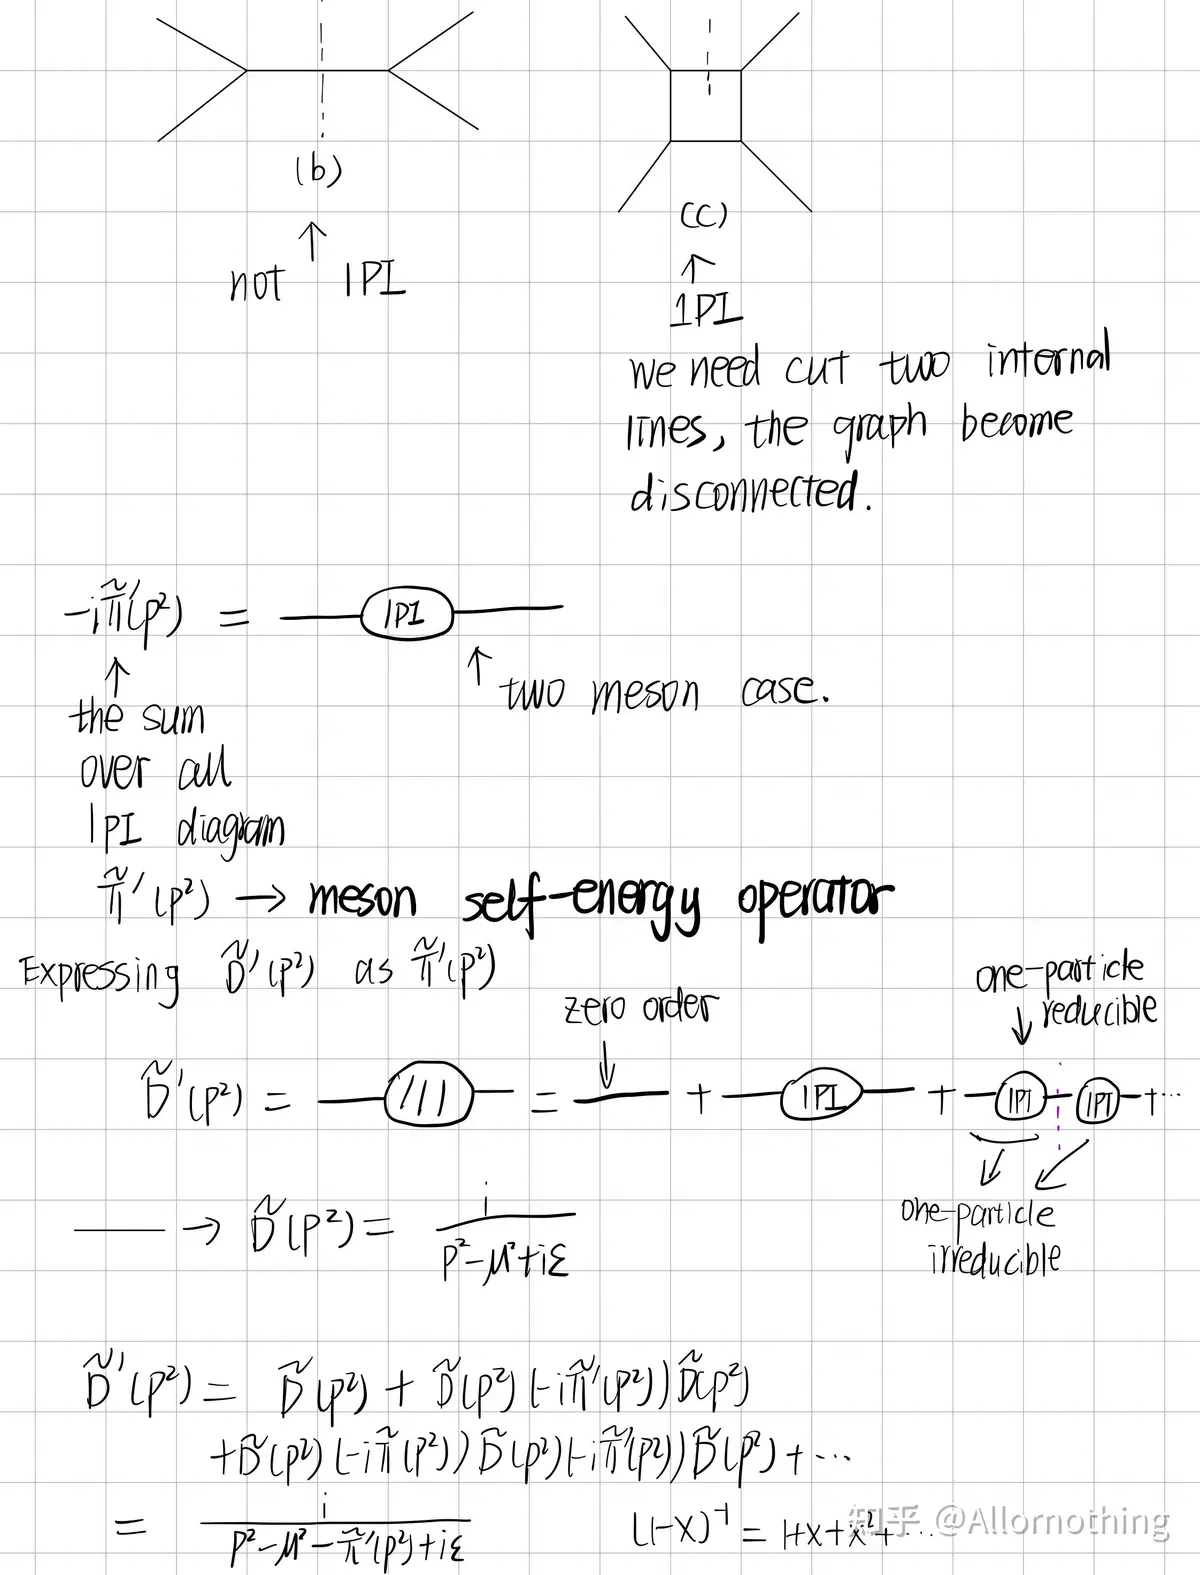 (b)
(C)
↑
not 1PI
↑
1PI
we need cut two internal
lines, the graph become
disconnected.
-iπ̃'(p²) = 1PI
↑
the sum
over all
1PI diagram
↑ two meson case.
π̃'(p²) → meson self-energy operator
Expressing D̃'(p²) as π̃'(p²)
zero order
one-particle
reducible
D̃'(p²) = /// = + 1PI + 1PI 1PI + ...
one-particle
irreducible
→ D̃(p²) = i / (p²-μ²+iε)
D̃'(p²) = D̃(p²) + D̃(p²)(-iπ̃'(p²))D̃(p²)
+D̃(p²)(-iπ̃(p²))D̃(p²)(-iπ̃'(p²))D̃(p²)+...
= i / (p²-μ²-π̃'(p²)+iε)
(1-x)⁻¹ = 1+x+x²+...
知乎 @Allornothing